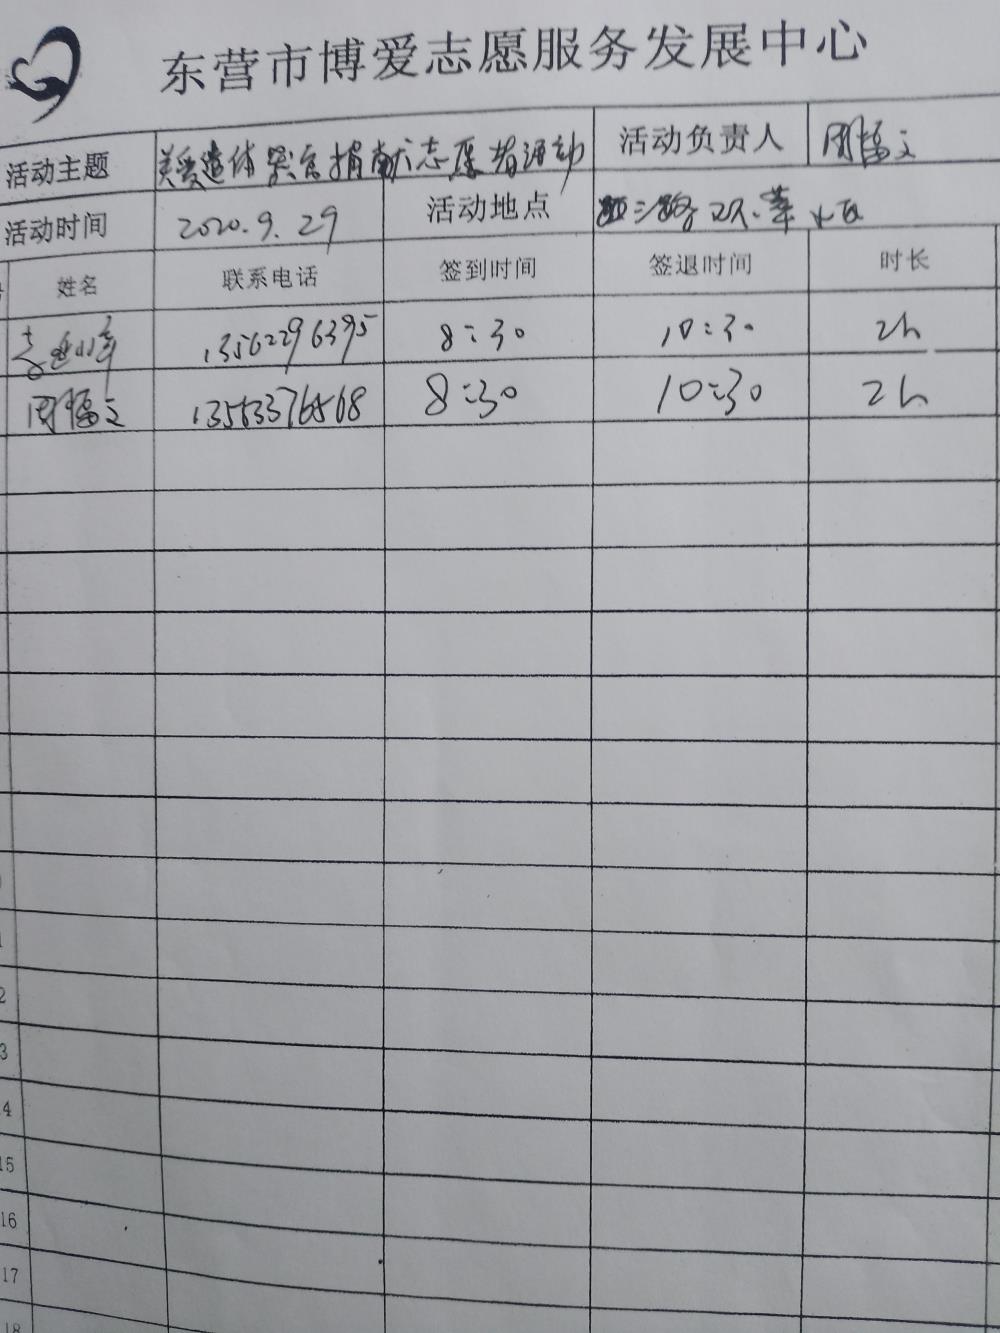 东营市博爱志愿服务发展中心
活动主题 关爱遗体器官捐献志愿者活动 活动负责人 周福文
活动时间 2020.9.29 活动地点
姓名 联系电话 签到时间 签退时间 时长
13562296395 8:30 10:30 2h
周福文 13553376568 8:30 10:30 2h
2
3
4
15
16
17
18